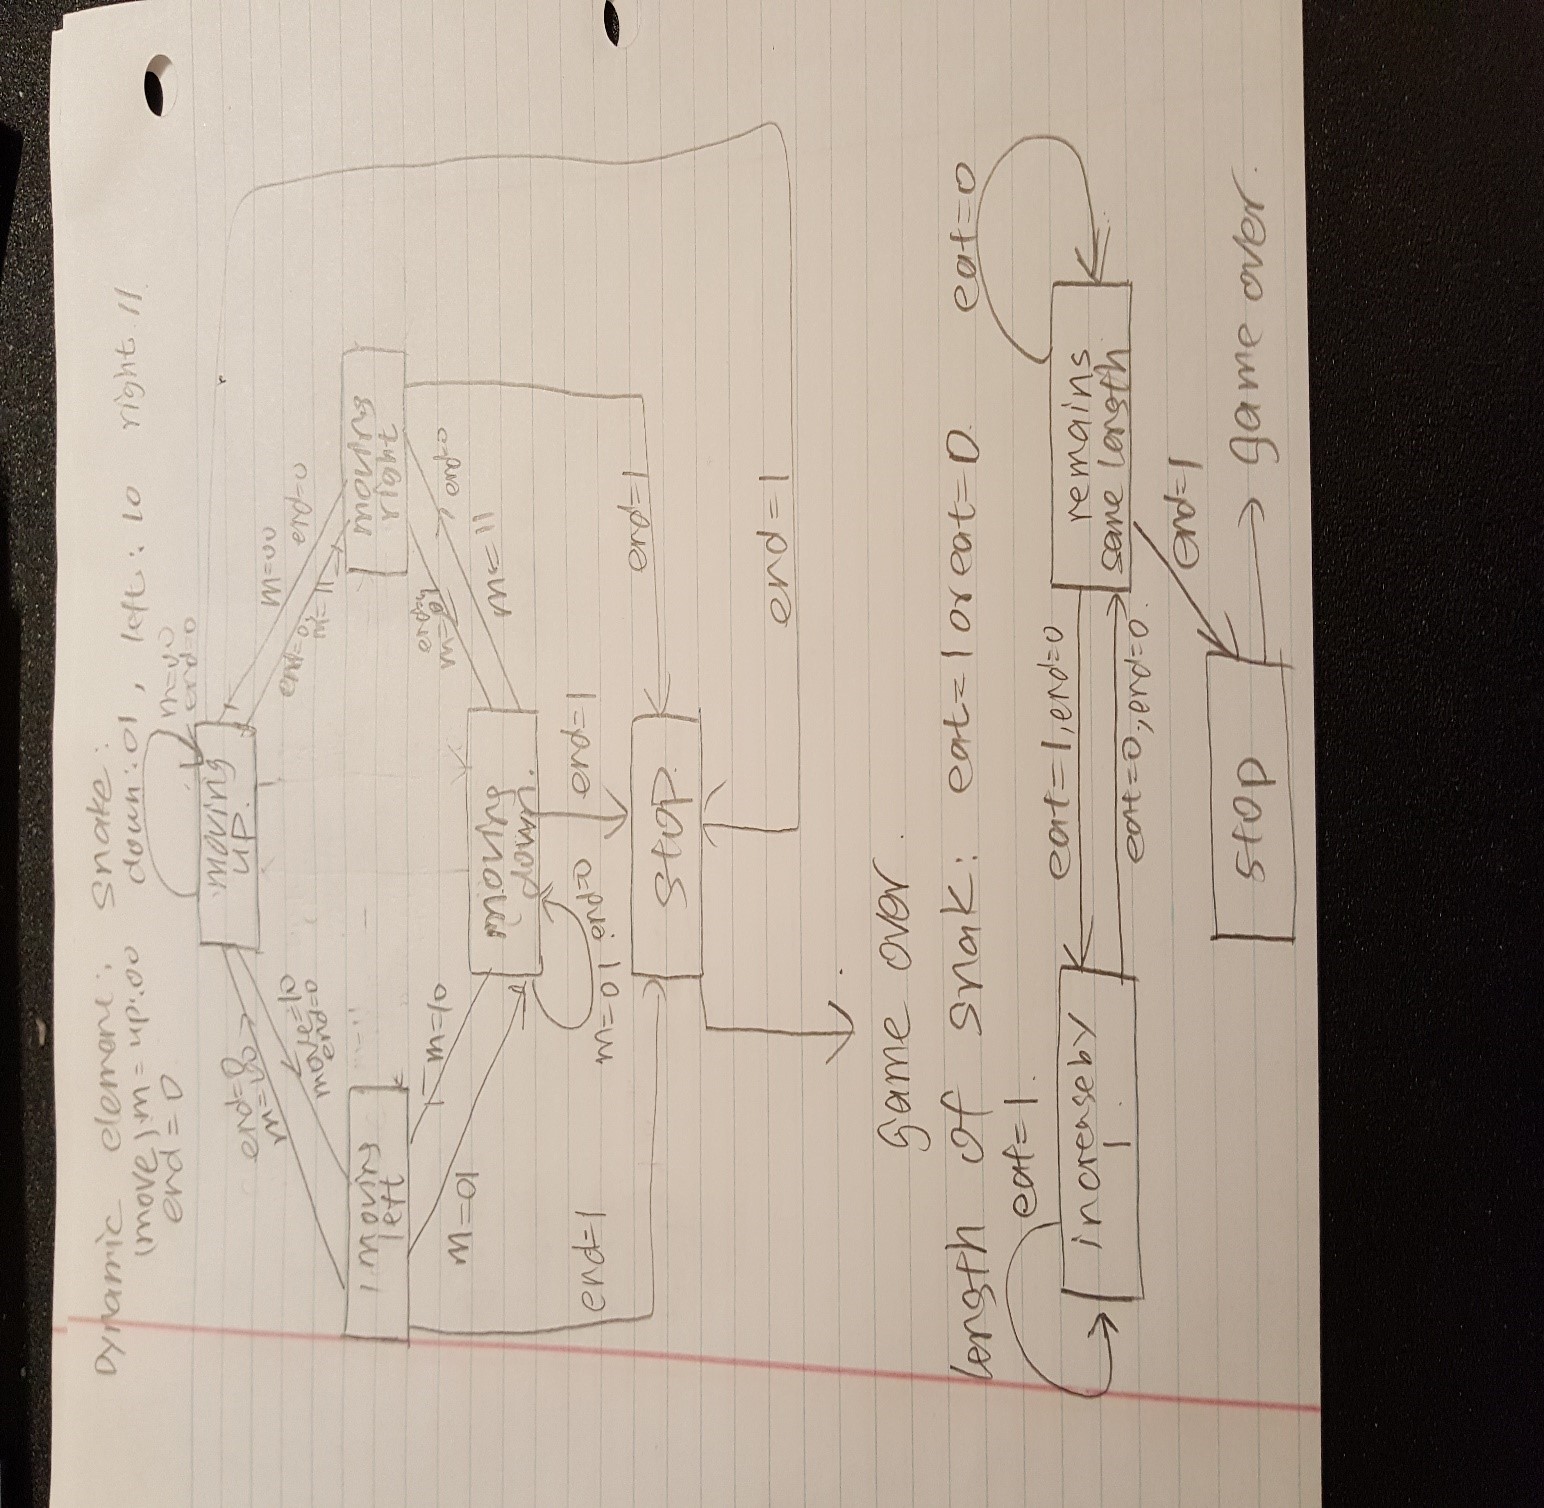 Dynamic element: Snake:
(move) m = up:00 down:01, left: 10 right 11
end = 0
m=00
end=0
moving
up.
end=0
m=00
move=10
end=0
m=00
end=0
end=0,
m=11
moving
left
moving
right
m=10
m=01
m=01
end=0
m=11
moving
down.
end=1
m=01 end=0
end=1
end=1
stop
end=1
game over.
length of snak: eat=1 or eat=0.
eat=0
eat=1.
increase by
1.
eat=1, end=0
eat=0, end=0.
remains
same length
end=1
stop
game over.